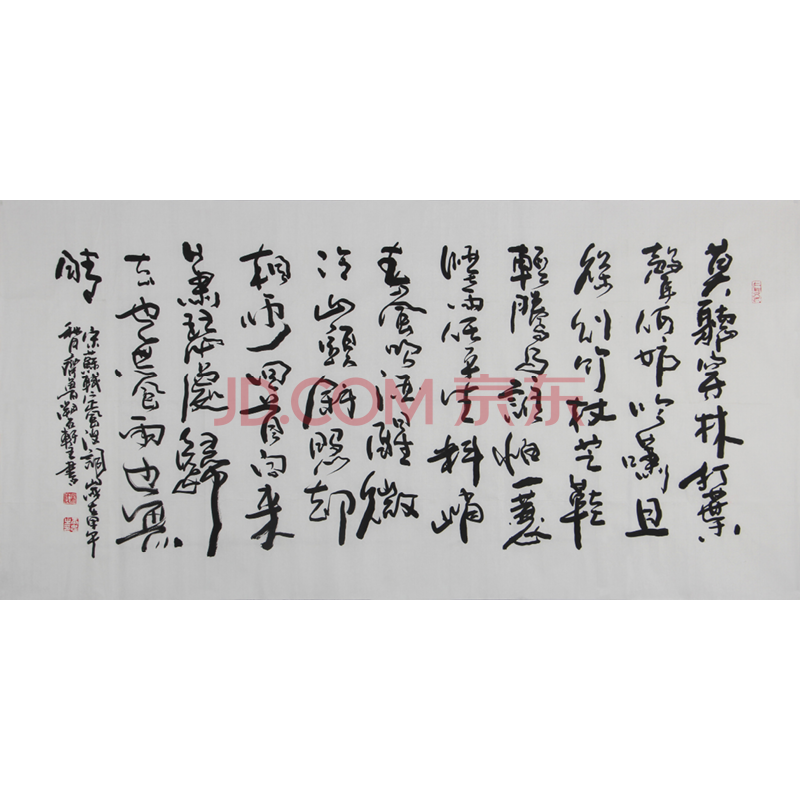 莫聽穿林打葉
聲何妨吟嘯且
徐行竹杖芒鞋
輕勝馬誰怕一蓑
煙雨任平生料峭
春風吹酒醒微
冷山頭斜照卻
相迎回首向來
蕭瑟處歸
去也無風雨也無
晴
宋蘇軾定風波詞歲在甲午
齊魯軒主書
JD.COM 京东